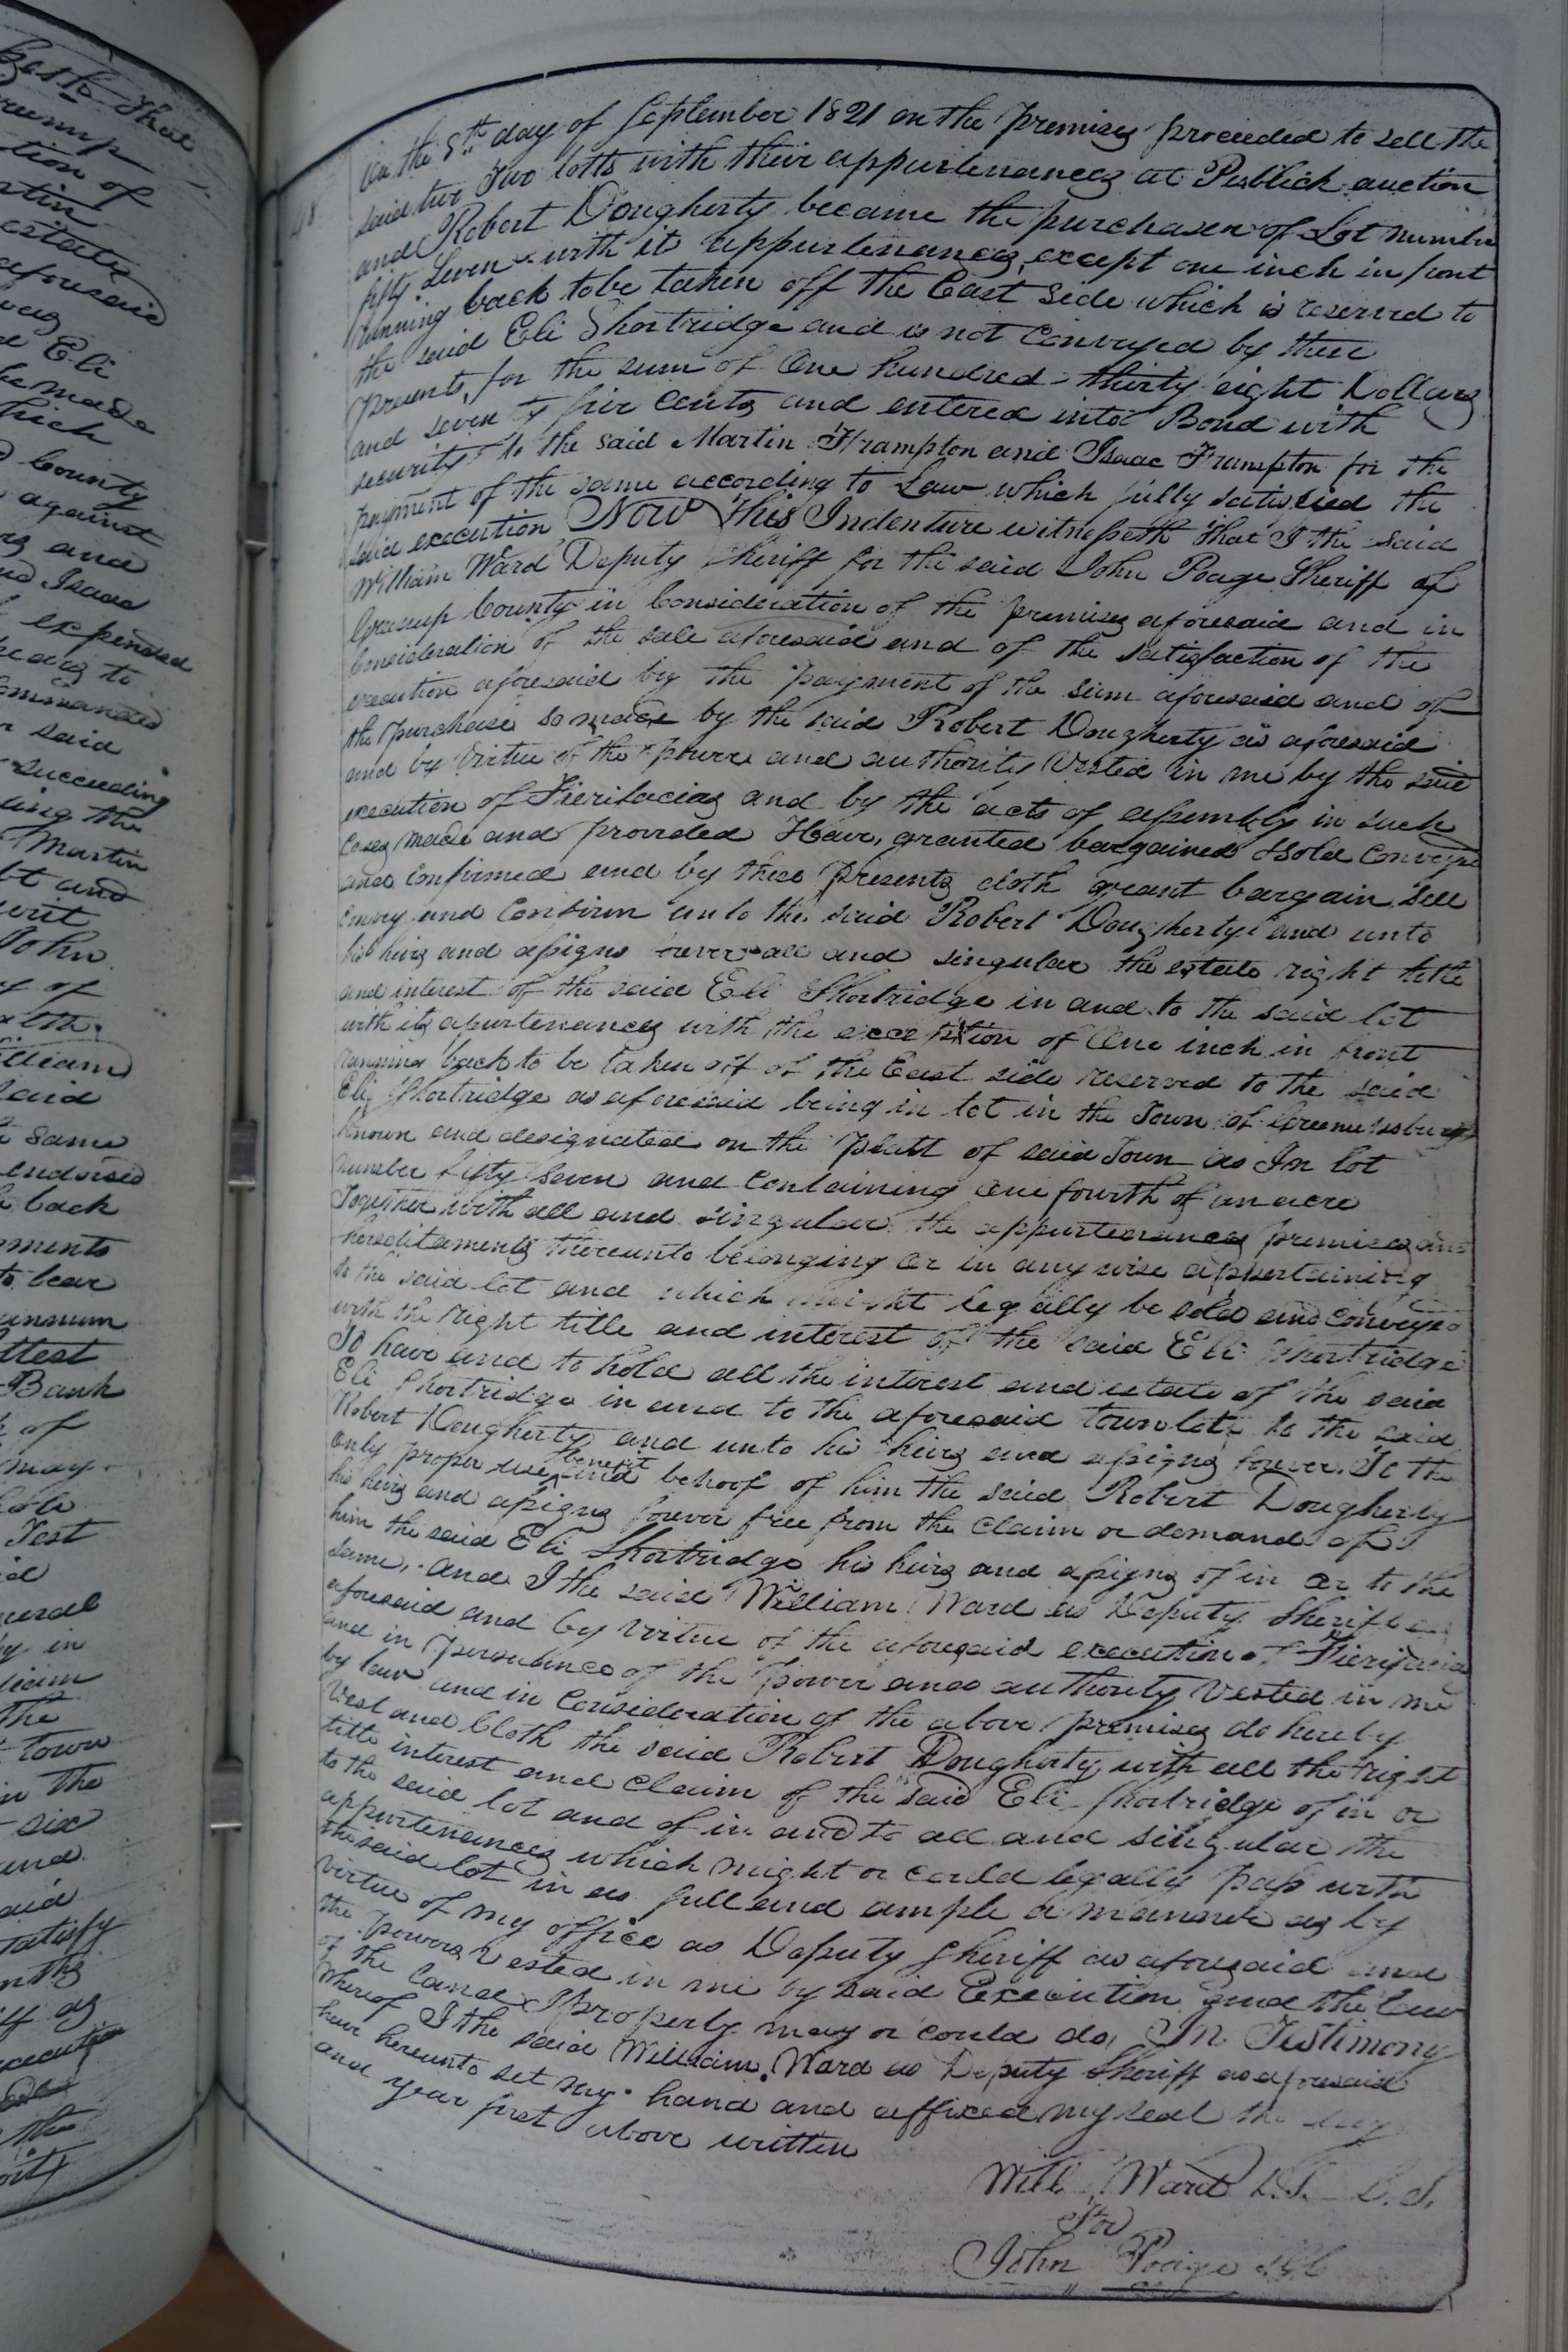 Eli
made
County
against
and
Isaac
expended
to
said
succeeding
the
Martin
and
John
of
said
same
back
to bear
Bank
of
may
Test
in
The
Town
in the
six
and
said
satisfy
as
the
on the 8th day of September 1821 on the premises proceeded to sell the
said two Two lotts with their appurtenances at Publick auction
and Robert Dougherty became the purchaser of Lot number
fifty Seven with it appurtenances, except one inch in front
running back to be taken off the East Side which is reserved to
the said Eli Shortridge and is not Conveyed by these
presents, for the sum of One hundred thirty eight Dollars
and seventy five Cents and entered into Bond with
security to the said Martin Frampton and Isaac Frampton for the
payment of the same according to Law which fully satisfied the
said execution Now This Indenture witnesseth that I the said
William Ward Deputy Sheriff for the said John Poage Sheriff of
Greenup County in Consideration of the premises aforesaid and in
Consideration of the sale aforesaid and of the satisfaction of the
execution aforesaid by the payment of the sum aforesaid and of
the purchase so made by the said Robert Dougherty as aforesaid
and by Virtue of the power and authority Vested in me by the said
execution of Fierifacias and by the acts of assembly in such
Cases made and provided Have, granted bargained & sold Conveyed
and Confirmed and by these presents doth grant bargain Sell
Convey and Confirm unto the said Robert Dougherty and unto
his heirs and assigns forever all and singular the estate right title
and interest of the said Eli Shortridge in and to the said lot
with its apurtenances with the exception of One inch in front
running back to be taken off of the East side reserved to the said
Eli Shortridge as aforesaid being in lot in the Town of Greenupsburg
Known and designated on the Platt of said Town as In lot
number fifty Seven and Containing One fourth of an acre
Together with all and singular the appurtenances premises and
hereditaments thereunto belonging or in anywise appertaining
to the said lot and which might legally be sold and conveyed
with the right title and interest of the said Eli Shortridge
To have and to hold all the interest and estate of the said
Eli Shortridge in and to the aforesaid town lot, to the said
Robert Dougherty and unto his heirs and assigns forever. To the
only proper use, benefit and behoof of him the said Robert Dougherty
his heirs and assigns forever free from the Claim or demand of
him the said Eli Shortridge his heirs and assigns of in or to the
same, and I the said William Ward as Deputy Sheriff as
aforesaid and by Virtue of the aforesaid execution of Fierifacias
and in persuance of the Power and authority Vested in me
by law and in Consideration of the above premises do hereby
Vest and Cloth the said Robert Dougherty with all the right
title interest and Claim of the said Eli Shortridge of in or
to the said lot and of in and to all and singular the
appurtenances which might or could legally pass with
the said lot in as full and ample a manner as by
virtue of my office as Deputy Sheriff as aforesaid and
the powers Vested in me by said Execution and the law
of the Land properly may or could do, In Testimony
Whereof I the said William Ward as Deputy Sheriff as aforesaid
have hereunto set my hand and affixed my seal the day
and year first above written
Will Ward D.S. L.S.
For
John Poage S.G.C